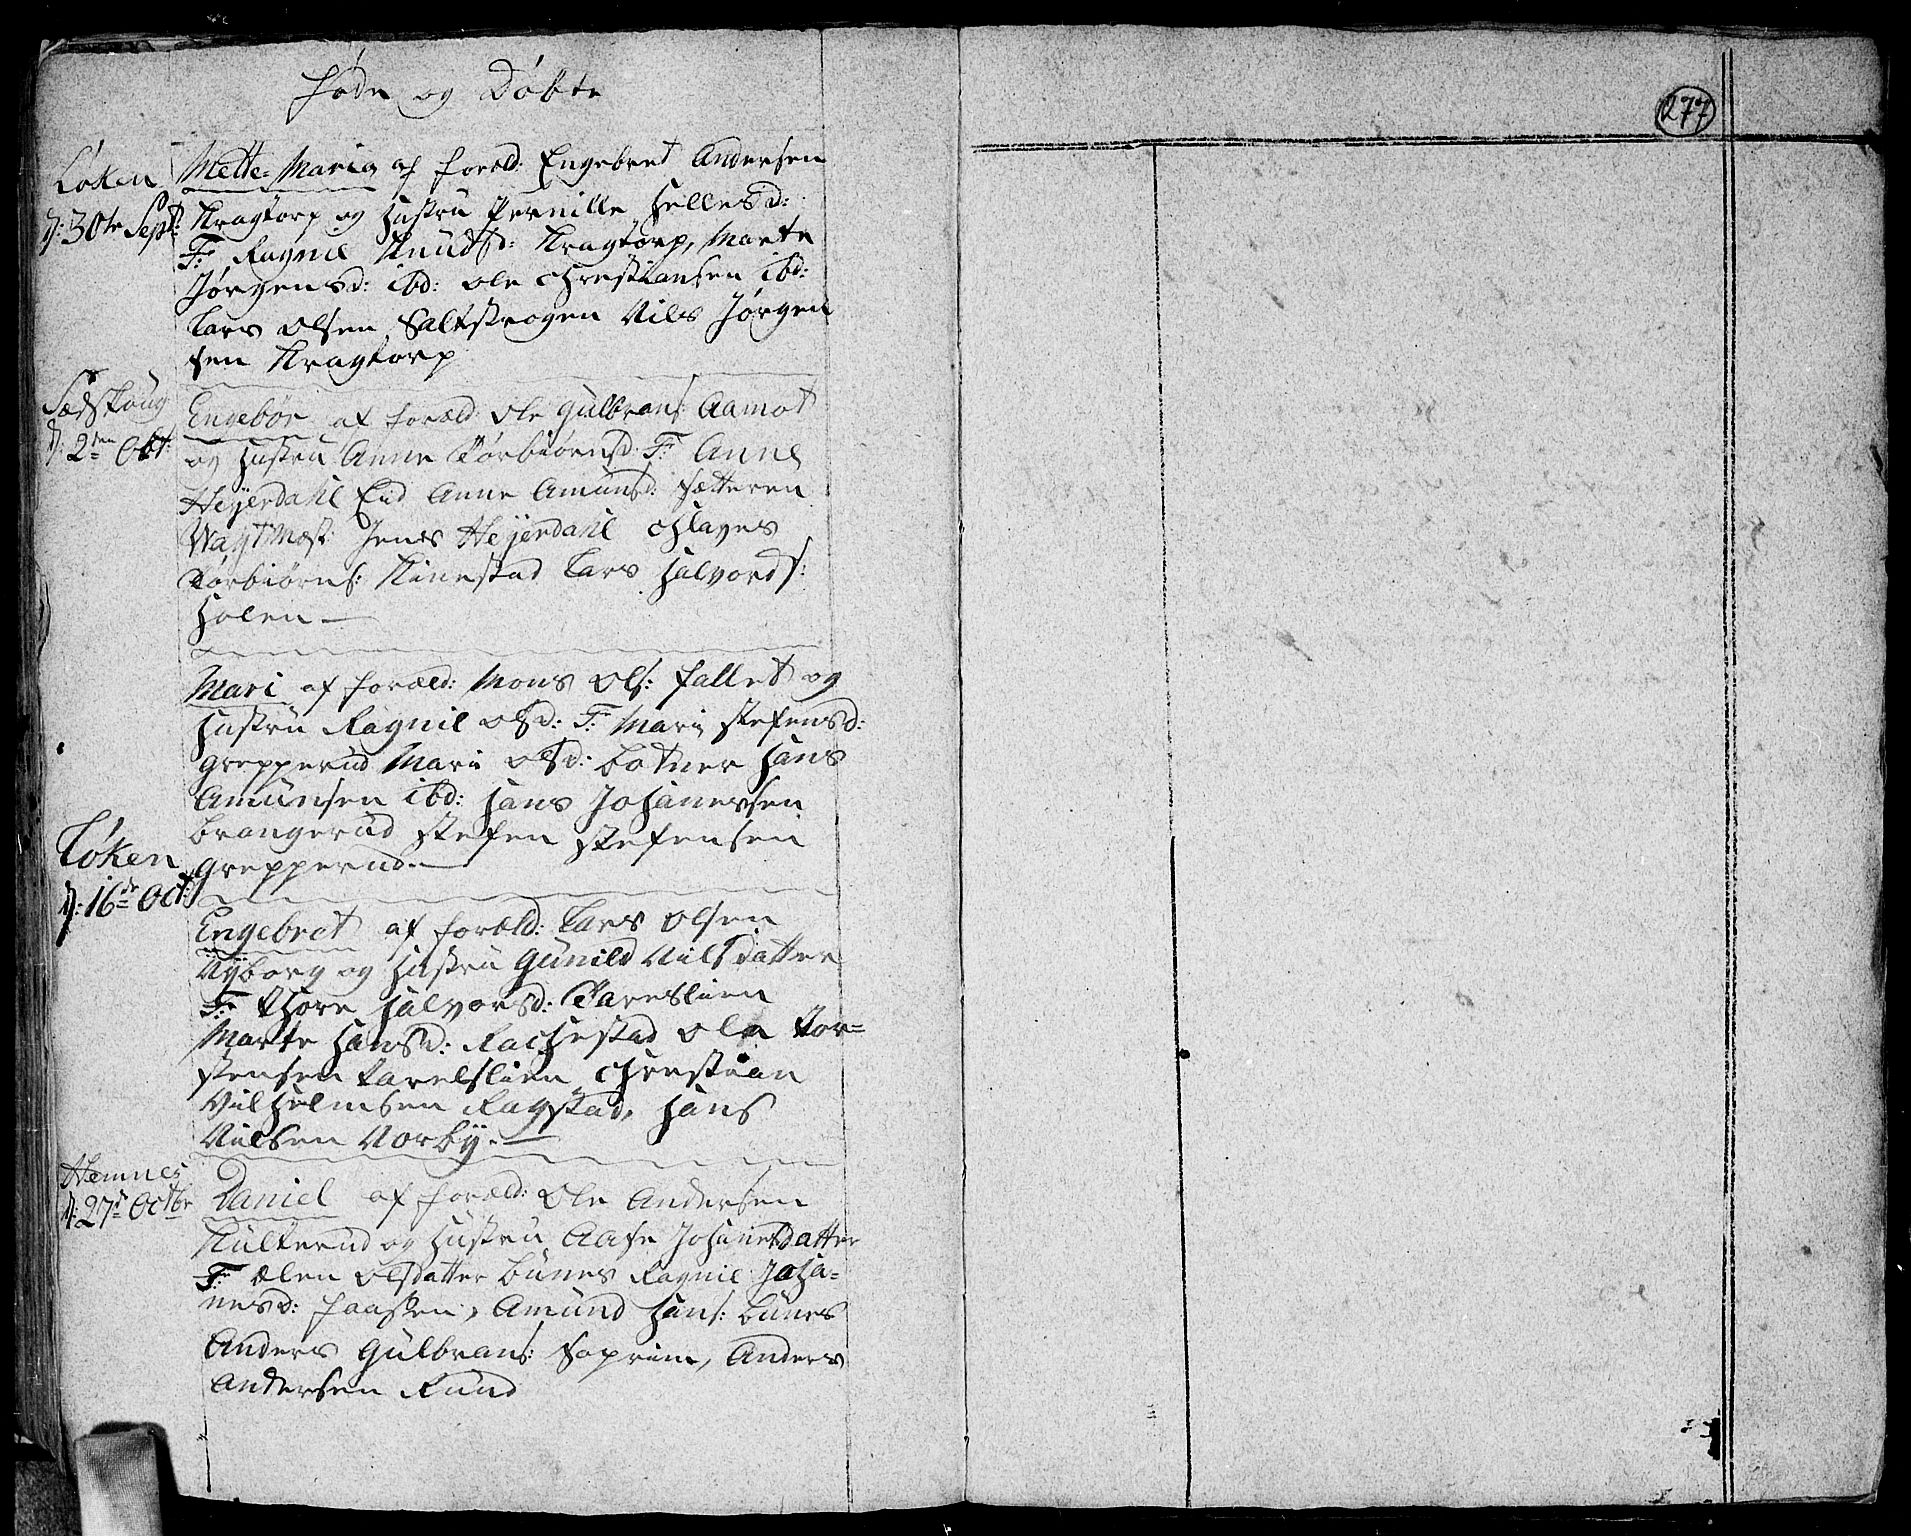 föde og Döbte
277
Løken
d: 30te Sept:
Mette Maria af foræld: Engebret Andersen
Kragtorp og Hustru Pernille Hellesd:
F: Ragnil Knudsd: Kragtorp, Marte
Jørgensd: ibd: Ole Christiansen ibd:
Lars Olsen Saltskrogen Nils Jørgen
sen Kragtorp
Sædskoug
d: 2den Obt:
Engebør af foræld: Ole Gulbrans: Aamot
og Hustru Anne Torbiørnsd: F: Anne
Heyerdahl Eid Anne Amunsd: Sætteren
Wagtmæst: Jenes Heyerdahl Claves
Torbiørns: Kinestad Lars Halvords:
Holen
Mari af foræld: Mons Ols: fallet og
Hustru Ragnil Olsd: F: Mari Stefensd:
Grepperud Mari Olsd: Botner Hans
Amunsen ibd: Hans Johanessen
Brangerud Stefen Stefensen
Grepperud
Løken
d: 16de Oct:
Engebret af foræld: Lars Olsen
Nyborg og Hustru Gunild Nilsdatter
F: Thore Halvorsd: Tareslien
Marte Hansd: Rachestad Ole Tor=
stensen Tarelslien Christian
Vilhelmsen Ragstad, Hans
Nilsen Norby.
Hemnes
d: 27d Octbr
Daniel af foræld: Ole Andersen
Kulterud og Hustru Aase Johanesdatter
F: Ælen Olsdatter Bunes Ragnil Joha=
nesd: Haasken, Amund Hans: Bunes
Anders Gulbrans: Soprim, Anders
Andersen Rund